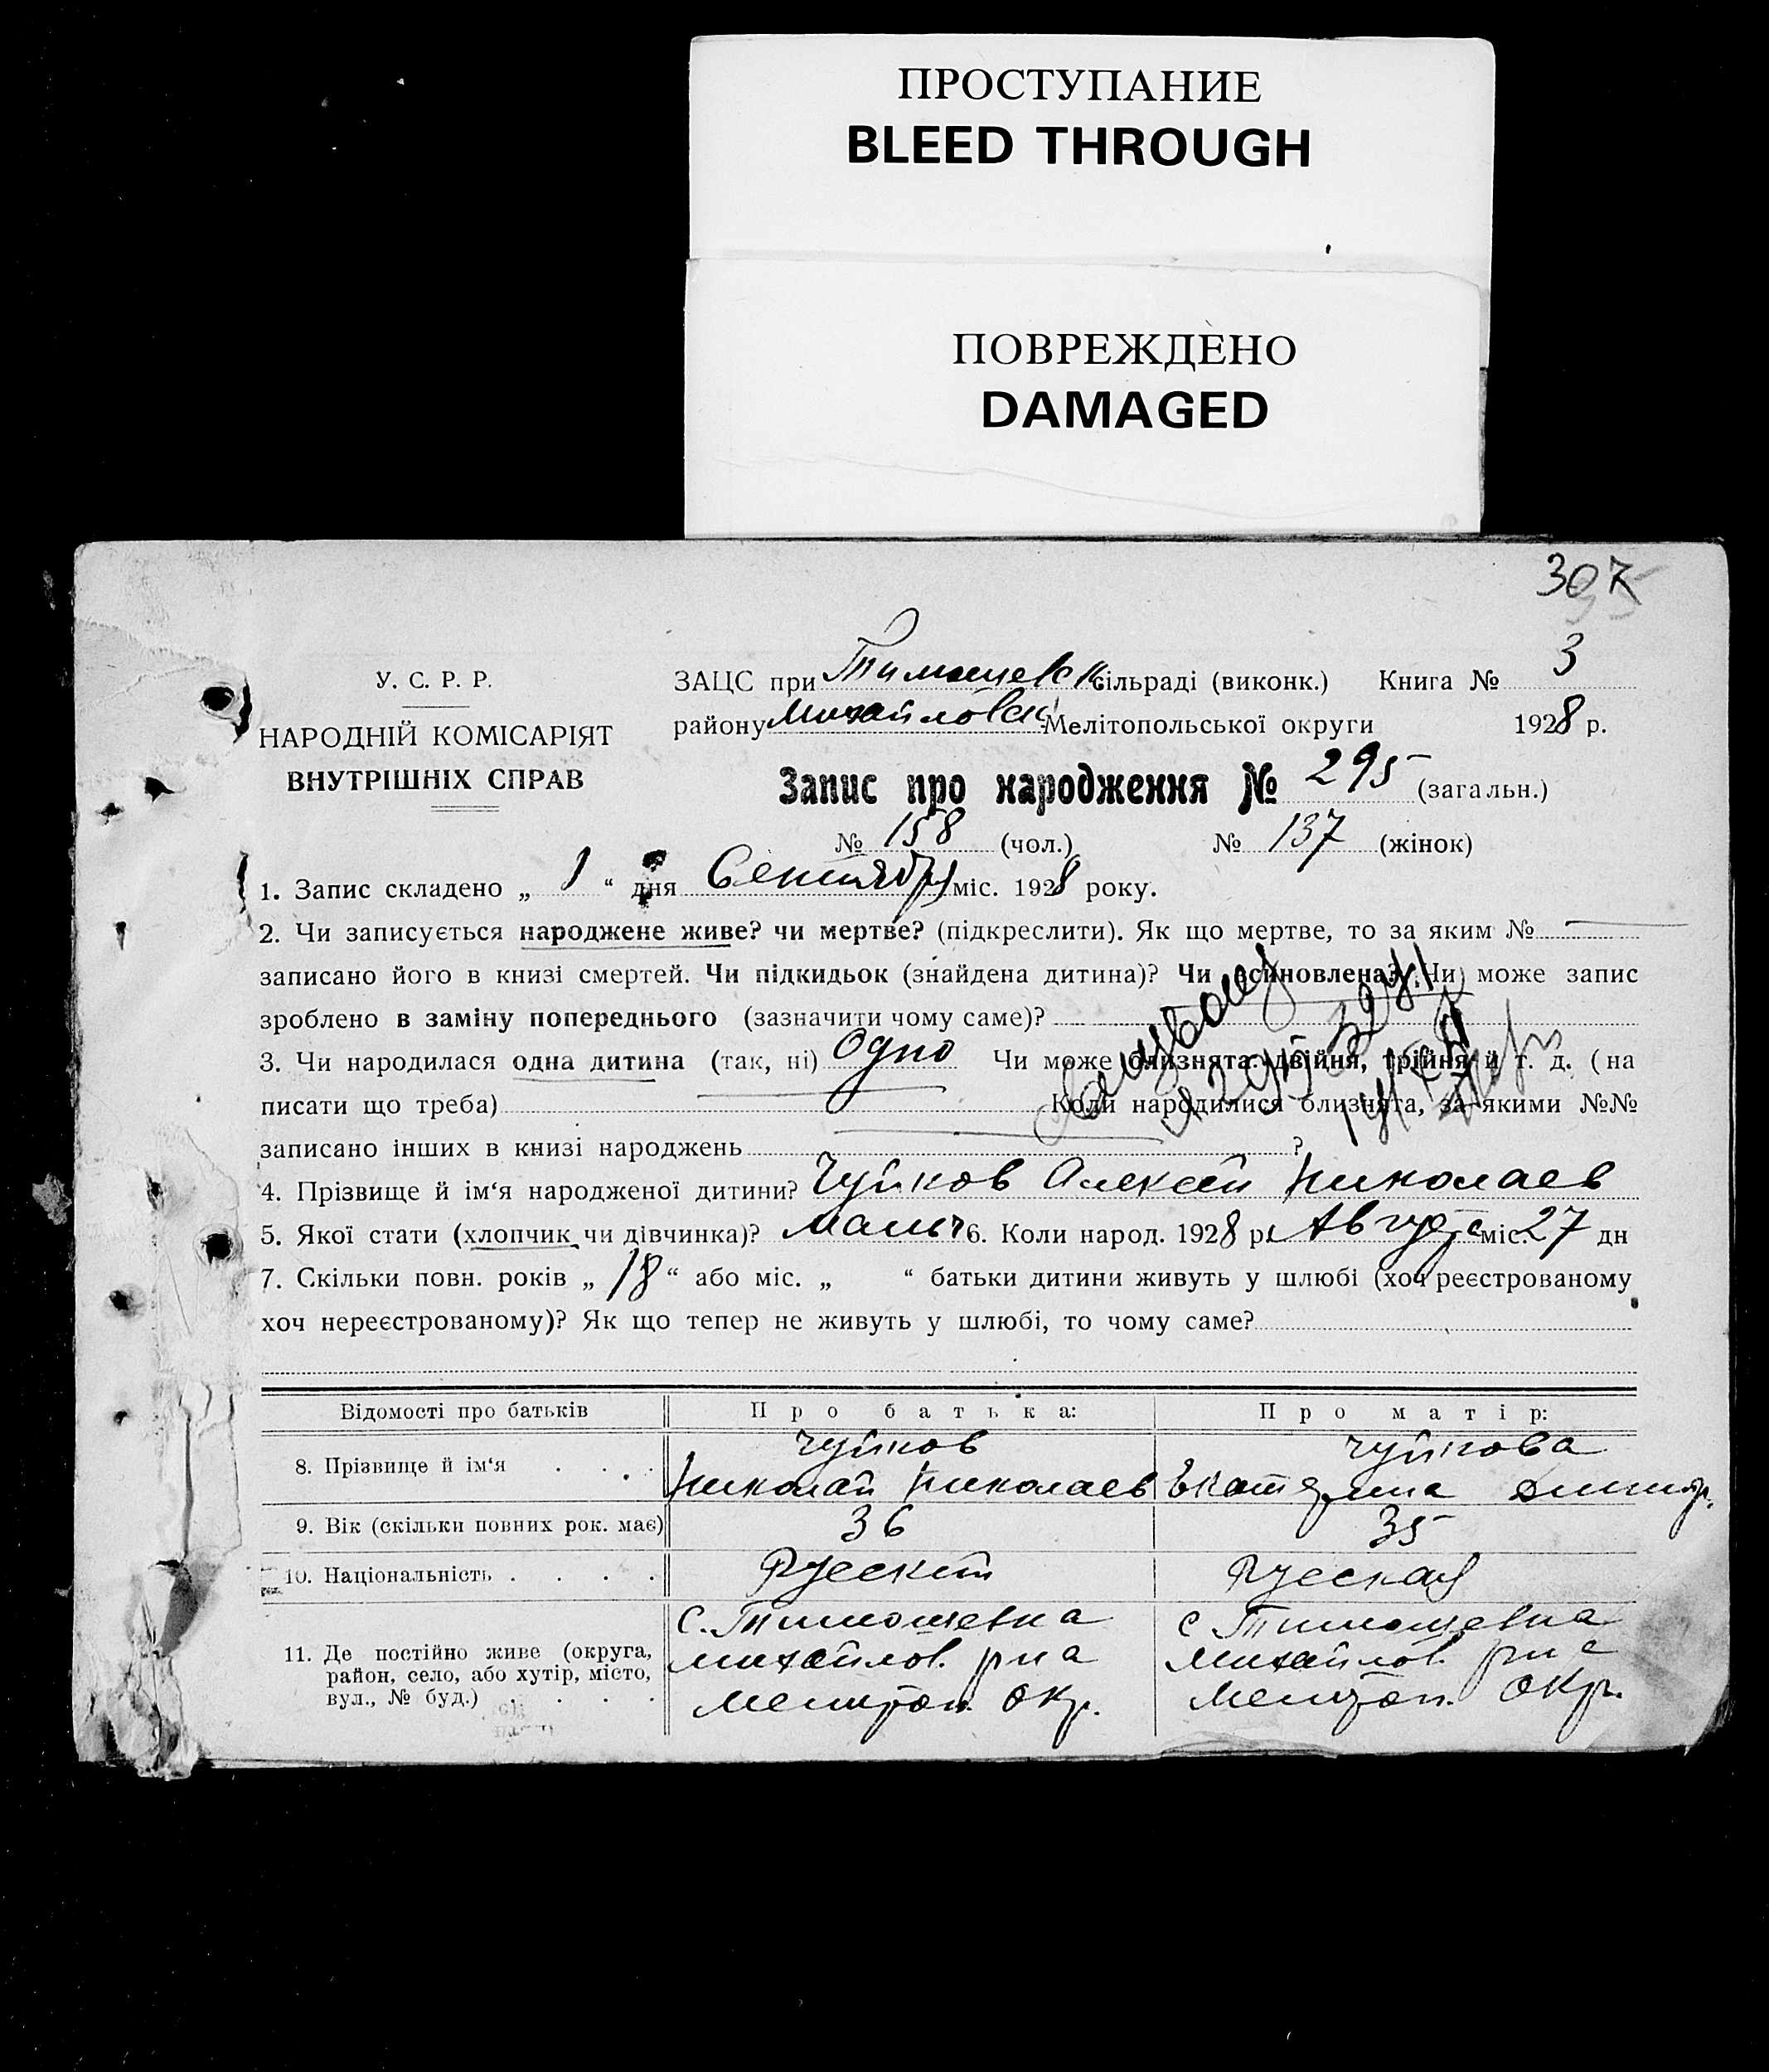 ПРОСТУПАНИЕ
BLEED THROUGH
ПОВРЕЖДЕНО
DAMAGED
307
У. С. Р. Р.
НАРОДНІЙ КОМІСАРІЯТ
ВНУТРІШНІХ СПРАВ
ЗАЦС при Тимошевск сільраді (виконк.) Книга № 3
району Михайловск Мелітопольської округи 1928 р.
Запис про народження № 295 (загальн.)
№ 158 (чол.) № 137 (жінок)
1. Запис складено „ 1 “ дня Сентября міс. 1928 року.
2. Чи записується народжене живе? чи мертве? (підкреслити). Як що мертве, то за яким №
записано його в книзі смертей. Чи підкидьок (знайдена дитина)? Чи всиновлена? Чи може запис
зроблено в заміну попереднього (зазначити чому саме)?
3. Чи народилася одна дитина (так, ні) Одно Чи може близнята: двійня, трійня й т. д. (на
писати що треба) Коли народилися близнята, за якими №№
записано інших в книзі народжень ?
4. Прізвище й ім‘я народженої дитини? Чуйков Алексей Николаев
5. Якої стати (хлопчик чи дівчинка)? Мальч 6. Коли народ. 1928 р. Август міс. 27 дн
7. Скільки повн. років „ 18 “ або міс. „ “ батьки дитини живуть у шлюбі (хоч реєстрованому
хоч нереєстрованому)? Як що тепер не живуть у шлюбі, то чому саме?
Відомості про батьків Про батька: Про матір:
8. Прізвище й ім‘я . . . Чуйков Чуйкова
Николай Николаев Екатерина Дмитр.
9. Вік (скільки повних рок. має) 36 35
10. Національність . . . . Русский Русская
11. Де постійно живе (округа, район, село, або хутір, місто, вул., № буд.) . . . .
с. Тимошевка с Тимошевка
Михайлов. рна Михайлов. рна
Мелитоп. Окр. Мелитоп. Окр.